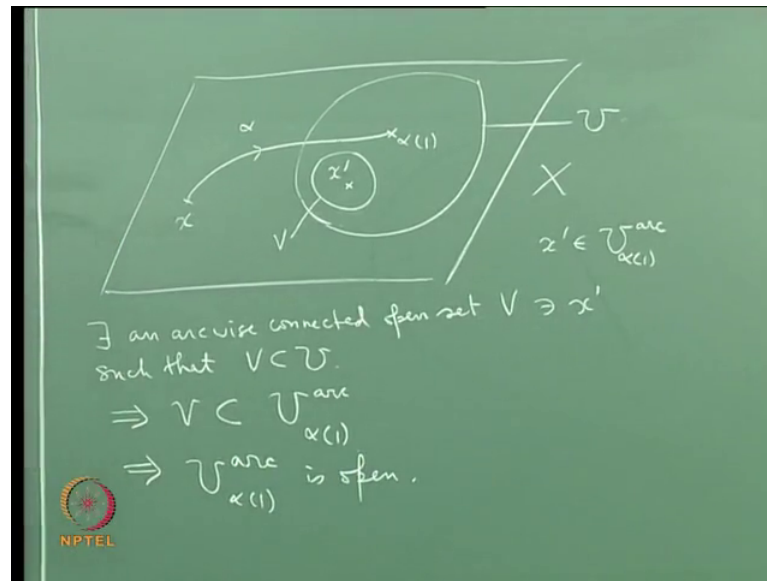 α
α(1)
U
x'
X
x
V
x' ∈ U^arc_α(1)
∃ an arcwise connected open set V ∋ x'
such that V ⊂ U.
⇒ V ⊂ U^arc_α(1)
⇒ U^arc_α(1) is open.
NPTEL